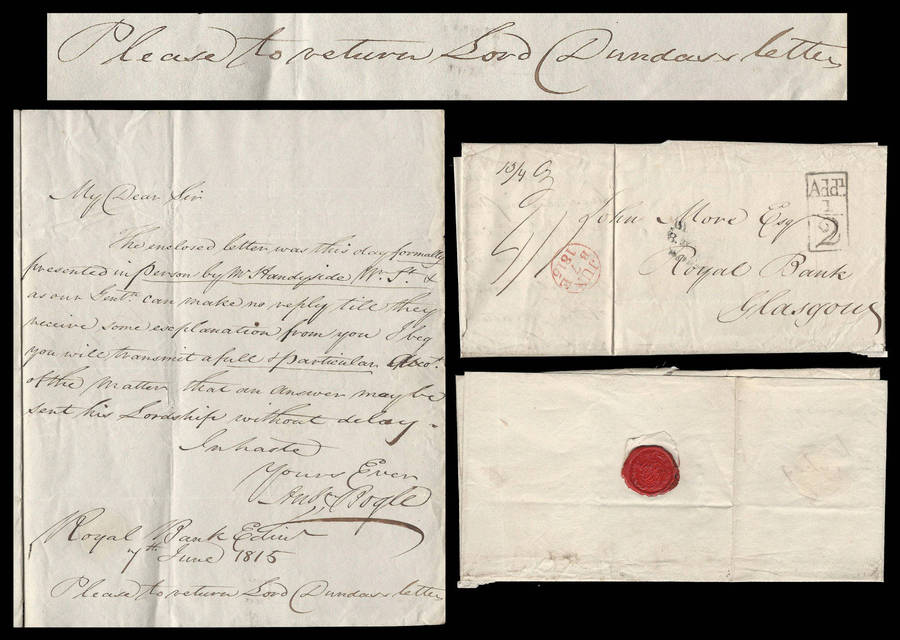 Please to return Lord Dundass letter
My Dear Sir
The enclosed letter was this day formally
presented in person by Mr Handyside Wr. St. &
as our Gentn. can make no reply till they
receive some explanation from you I beg
you will transmit a full & particular Acco.
of the matter that an answer may be
sent his Lordship without delay -
In haste
Yours Ever
Bogle
Royal Bank Edinr
7th June 1815
Please to return Lord Dundass letter
John More Esq
Royal Bank
Glasgow
JUN
1815
1/2